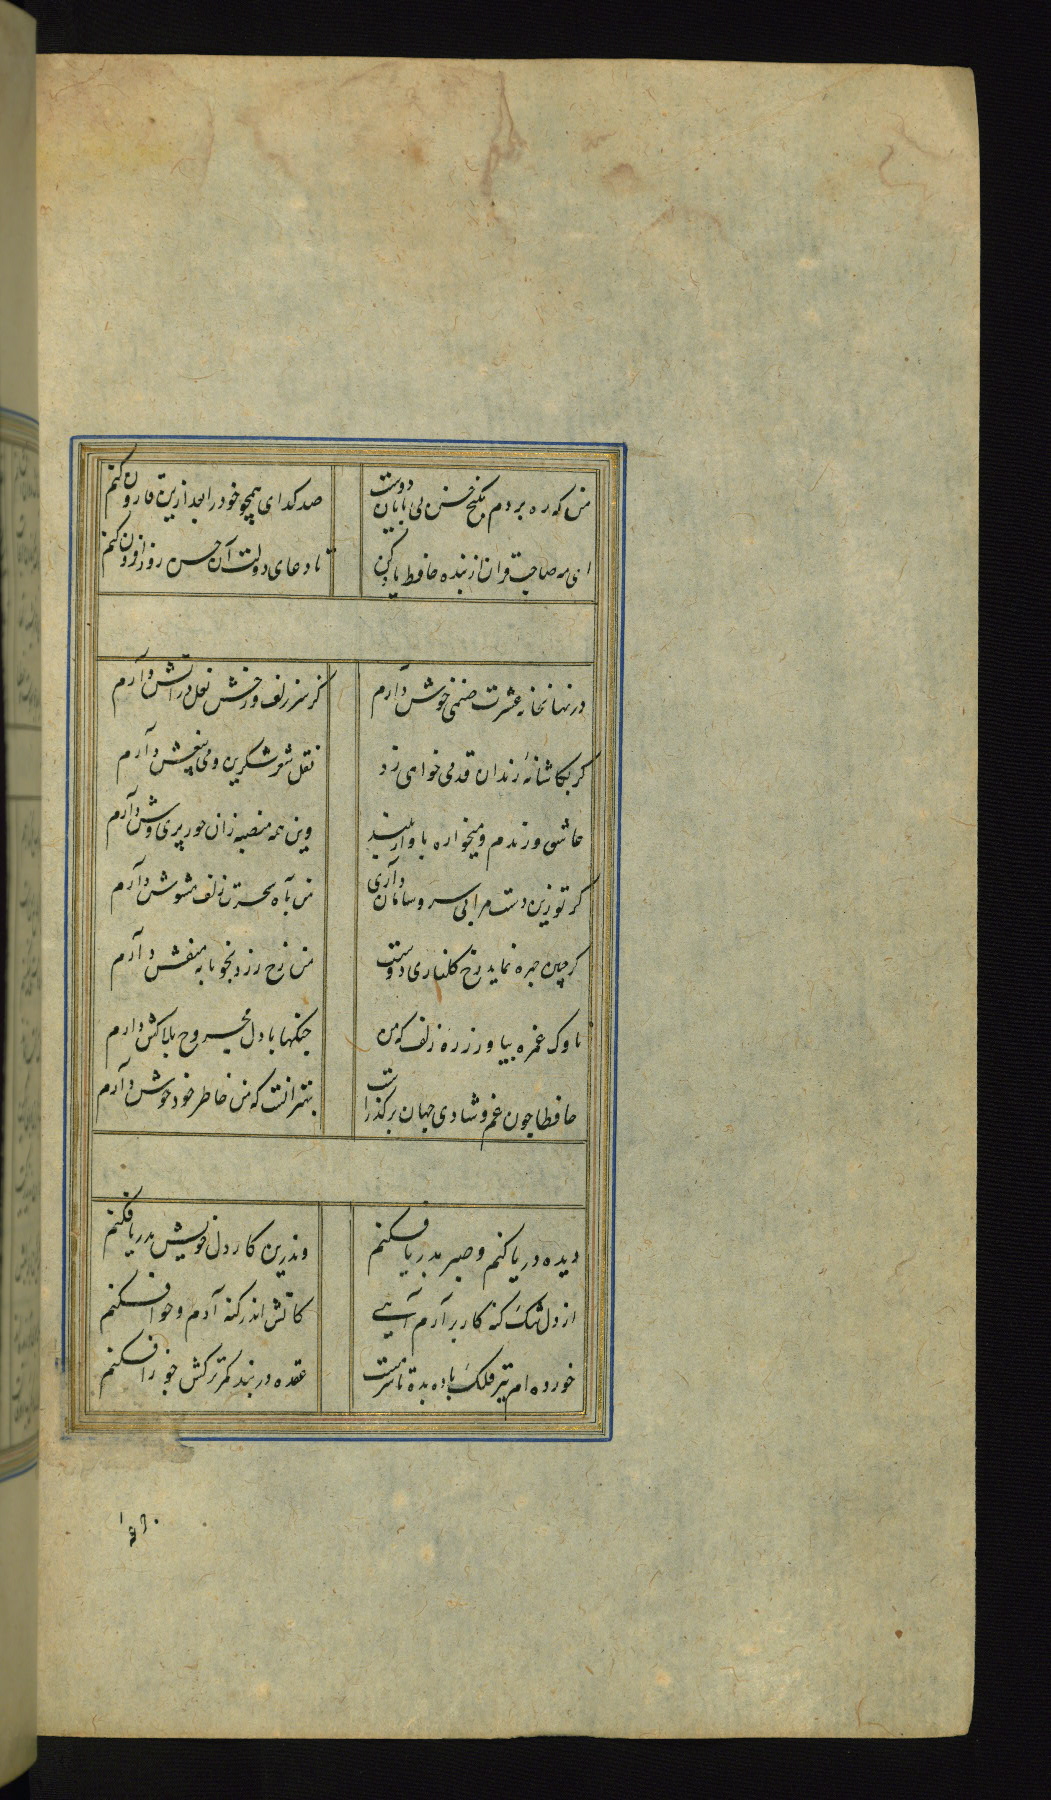 من که ره بردم بکنج حسن بی پایان دوست
صد کدای همچو خود را بعد ازین قارون کنم
ای مه صاحب قران از بنده حافظ یاد کن
تا دعای دولت آن حسن روز افزون کنم
در نهانخانه عشرت صنمی خوش دارم
کز سر زلف و رخش نعل در آتش دارم
کر بکاشانهٔ رندان قدمی خواهی زد
نقل شعر شکرین و می بیغش دارم
عاشق و رندم و میخواره باواز بلند
وین همه منصبه زان حور پری وش دارم
کر تو زین دست مرا بی سر و سامان داری
من بآه سحرت زلف مشوش دارم
کر چنین چهره نماید رخ کلناری دوست
من رخ زرد بخونابه منقش دارم
ناوک غمزه بیا و رزره زلف که من
جنکها با دل مجروح بلاکش دارم
حافظا چون غم و شادی جهان بر کذرست
بهتر انست که من خاطر خود خوش دارم
دیده دریا کنم و صبر بدریا فکنم
وندرین کار دل خویش بدریا فکنم
از دل تنک کنه کار بر آرم آهی
کاتش اندر کنه آدم و حوا فکنم
خورده ام تیر فلک باده بده تا سرمست
عقده در بند کمر ترکش جوزا فکنم